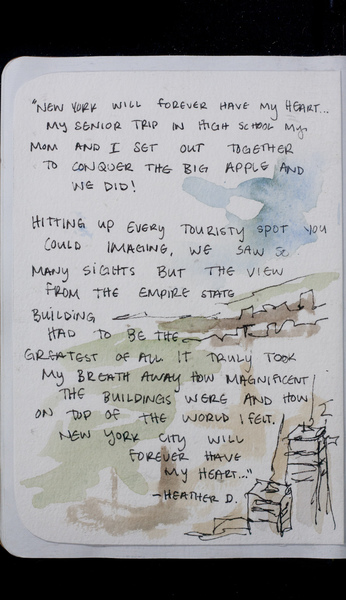 "NEW YORK WILL FOREVER HAVE MY HEART...
MY SENIOR TRIP IN HIGH SCHOOL MY
MOM AND I SET OUT TOGETHER
TO CONQUER THE BIG APPLE AND
WE DID!
HITTING UP EVERY TOURISTY SPOT YOU
COULD IMAGING, WE SAW SO
MANY SIGHTS BUT THE VIEW
FROM THE EMPIRE STATE
BUILDING
HAD TO BE THE
GREATEST OF ALL IT TRULY TOOK
MY BREATH AWAY HOW MAGNIFICENT
THE BUILDINGS WERE AND HOW
ON TOP OF THE WORLD I FELT.
NEW YORK CITY WILL
FOREVER HAVE
MY HEART..."
—HEATHER D.